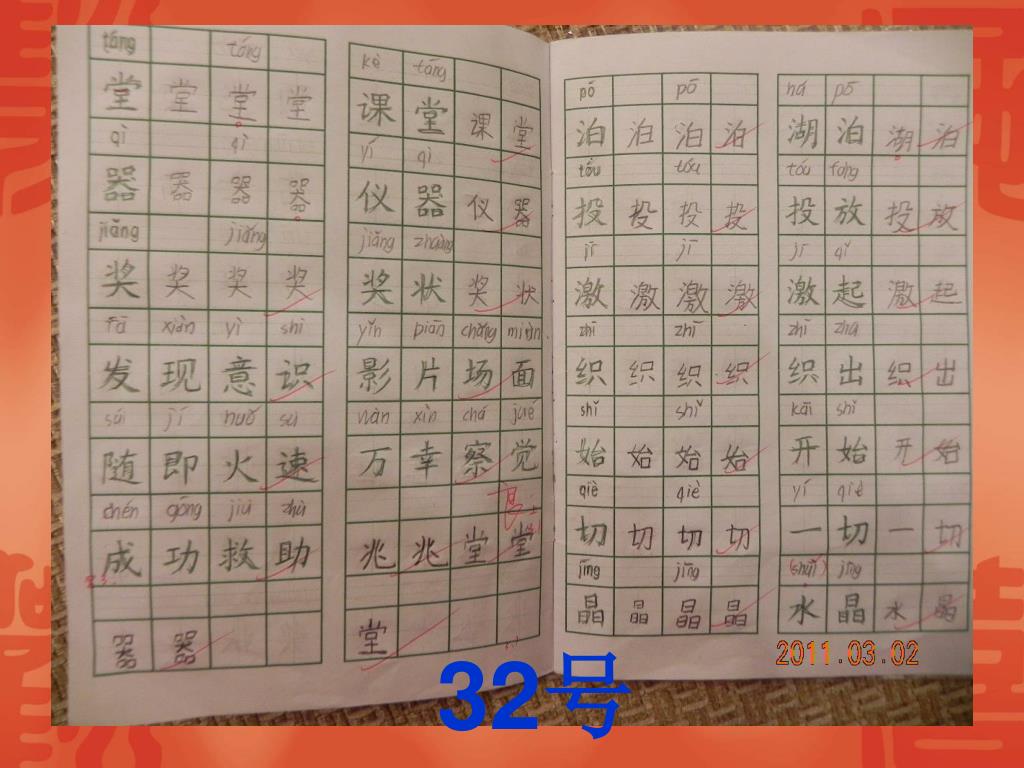 táng táng
堂 堂 堂 堂
qì qì
器 器 器 器
jiǎng jiǎng
奖 奖 奖 奖
fā xiàn yì shi
发 现 意 识
suí jí huǒ sù
随 即 火 速
chén gōng jiù zhù
成 功 救 助
器 器
kè táng
课 堂 课 堂
yí qì
仪 器 仪 器
奖 状 奖 状
yǐn piān chǎng miàn
影 片 场 面
wàn xìn chá jué
万 幸 察 觉
兆 兆 堂 堂
堂
pō pō
泊 泊 泊 泊
tóu tóu
投 投 投 投
jī jī
激 激 激 激
zhī zhī
织 织 织 织
shǐ shǐ
始 始 始 始
qiè qiè
切 切 切 切
jīng jīng
晶 晶 晶 晶
hú pō
湖 泊 湖 泊
tóu fàng
投 放 投 放
jī qǐ
激 起 激 起
织 出 织 出
kāi shǐ
开 始 开 始
yí qiè
一 切 一 切
jīng
水 晶 水 晶
2011.03.02
32号